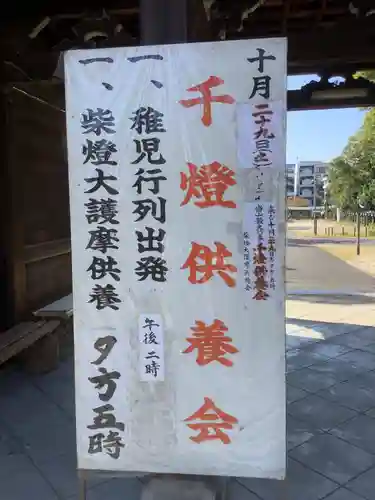 十月二十九日
千燈供養会
一、稚児行列出発
午後二時
一、柴燈大護摩供養
夕方五時